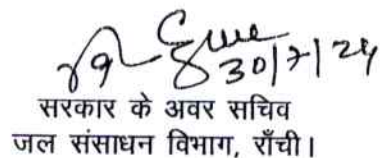 30/7/24
सरकार के अवर सचिव
जल संसाधन विभाग, राँची।